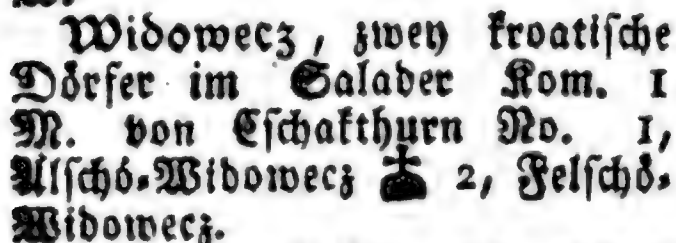 Widowecz, zwey kroatische
Dörfer im Salader Kom. 1
M. von Cschakthurn No. 1,
Alschó-Widowecz 2, Felschö-
Widowecz.